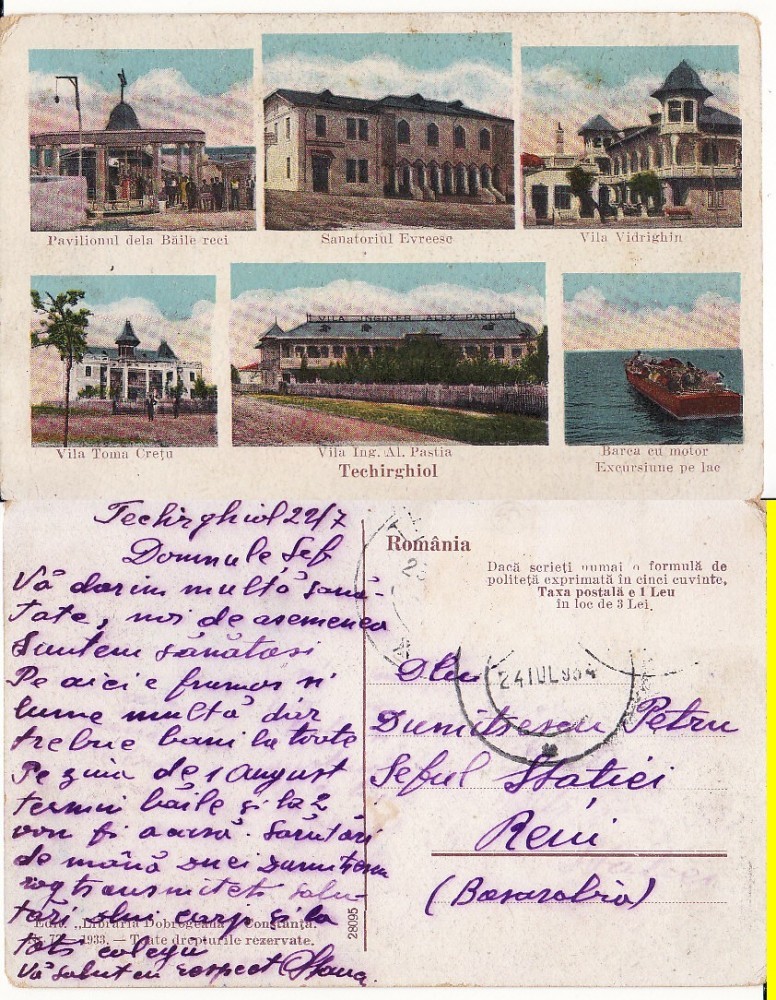 Pavilionul dela Băile reci
Sanatoriul Evreesc
Vila Vidrighin
VILA INGINER ALEX PASTIA
Vila Toma Crețu
Vila Ing. Al. Pastia
Barca cu motor
Excursiune pe lac
Techirghiol
Techirghiol 22/7
Domnule Șef
Vă dorim multă sănă-
tate, noi de asemenea
Suntem sănătosi
Pe aici e frumos si
lume multă dar
trebue bani la toate
Pe ziua de 1 August
termin băile și la 2
vom fi acasă. Sărutări
de mână Dnei Dumitrescu
rog transmiteti salu-
tări dlui și la
toti colegii
Vă salut cu respect
Editc. „Librăria Dobrogeană” Constanța.
1933. — Toate drepturile rezervate.
28095
România
Dacă scrieți numai o formulă de
politeță exprimată în cinci cuvinte,
Taxa poștală e 1 Leu
în loc de 3 Lei.
24 IUL 934
Dlui
Dumitrescu Petru
Șeful Statiei
Reni
(Basarabia)